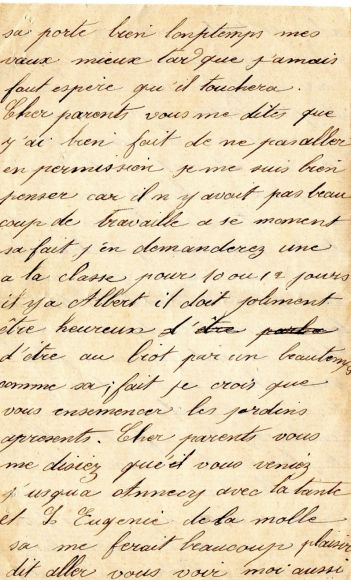 sa porte bien lonptemps mes
vaux mieux tard que j'amais
faut espère qu'il touchera.
Cher parents vous me dites que
y'ai bien fait de ne pas aller
en permission je me suis bien
penser car il n'y avait pas beau
coup de travaille a se moment
sa fait j'en demanderez une
a la classe pour 10 ou 12 jours
il y a Albert il doit joliment
être heureux d'être parba
d'être au biot par un beautemps
comme sa, fait je crois que
vous ensemencer les jardins
apresents. Cher parents vous
me disiez qu'il vous veniez
j'usqua Annecy avec la tante
et Eugenie de la molle
sa me ferait beaucoup plaisir
dit aller vous voir moi aussi